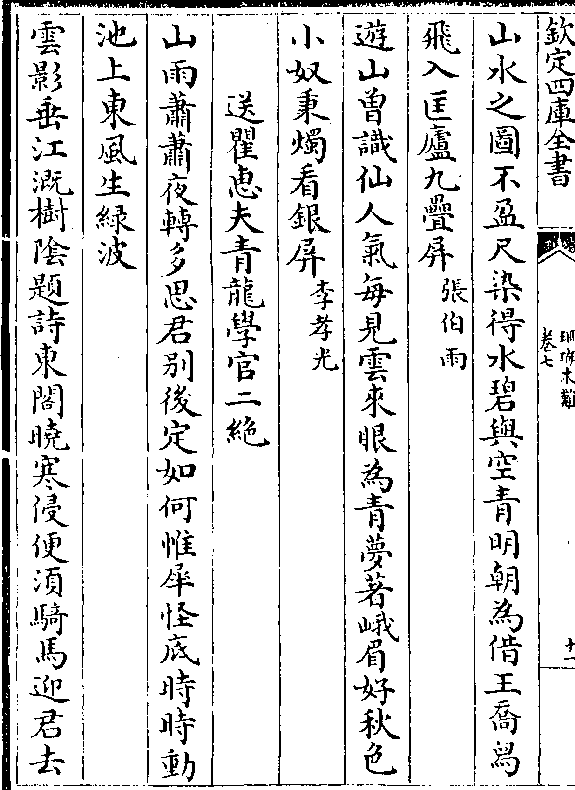 欽定四庫全書
珊瑚木難
卷七
十一
山水之圖不盈尺染得水碧與空青明朝為借王喬舄
飛入匡廬九疊屏 張伯雨
遊山曾識仙人氣每見雲來眼為青夢著峨眉好秋色
小奴秉燭看銀屏 李孝光
送瞿惠夫青龍學官二絶
山雨蕭蕭夜轉多思君别後定如何惟犀怪底時時動
池上東風生緑波
雲影垂江溉樹隂題詩東閣曉寒侵便湏騎馬迎君去